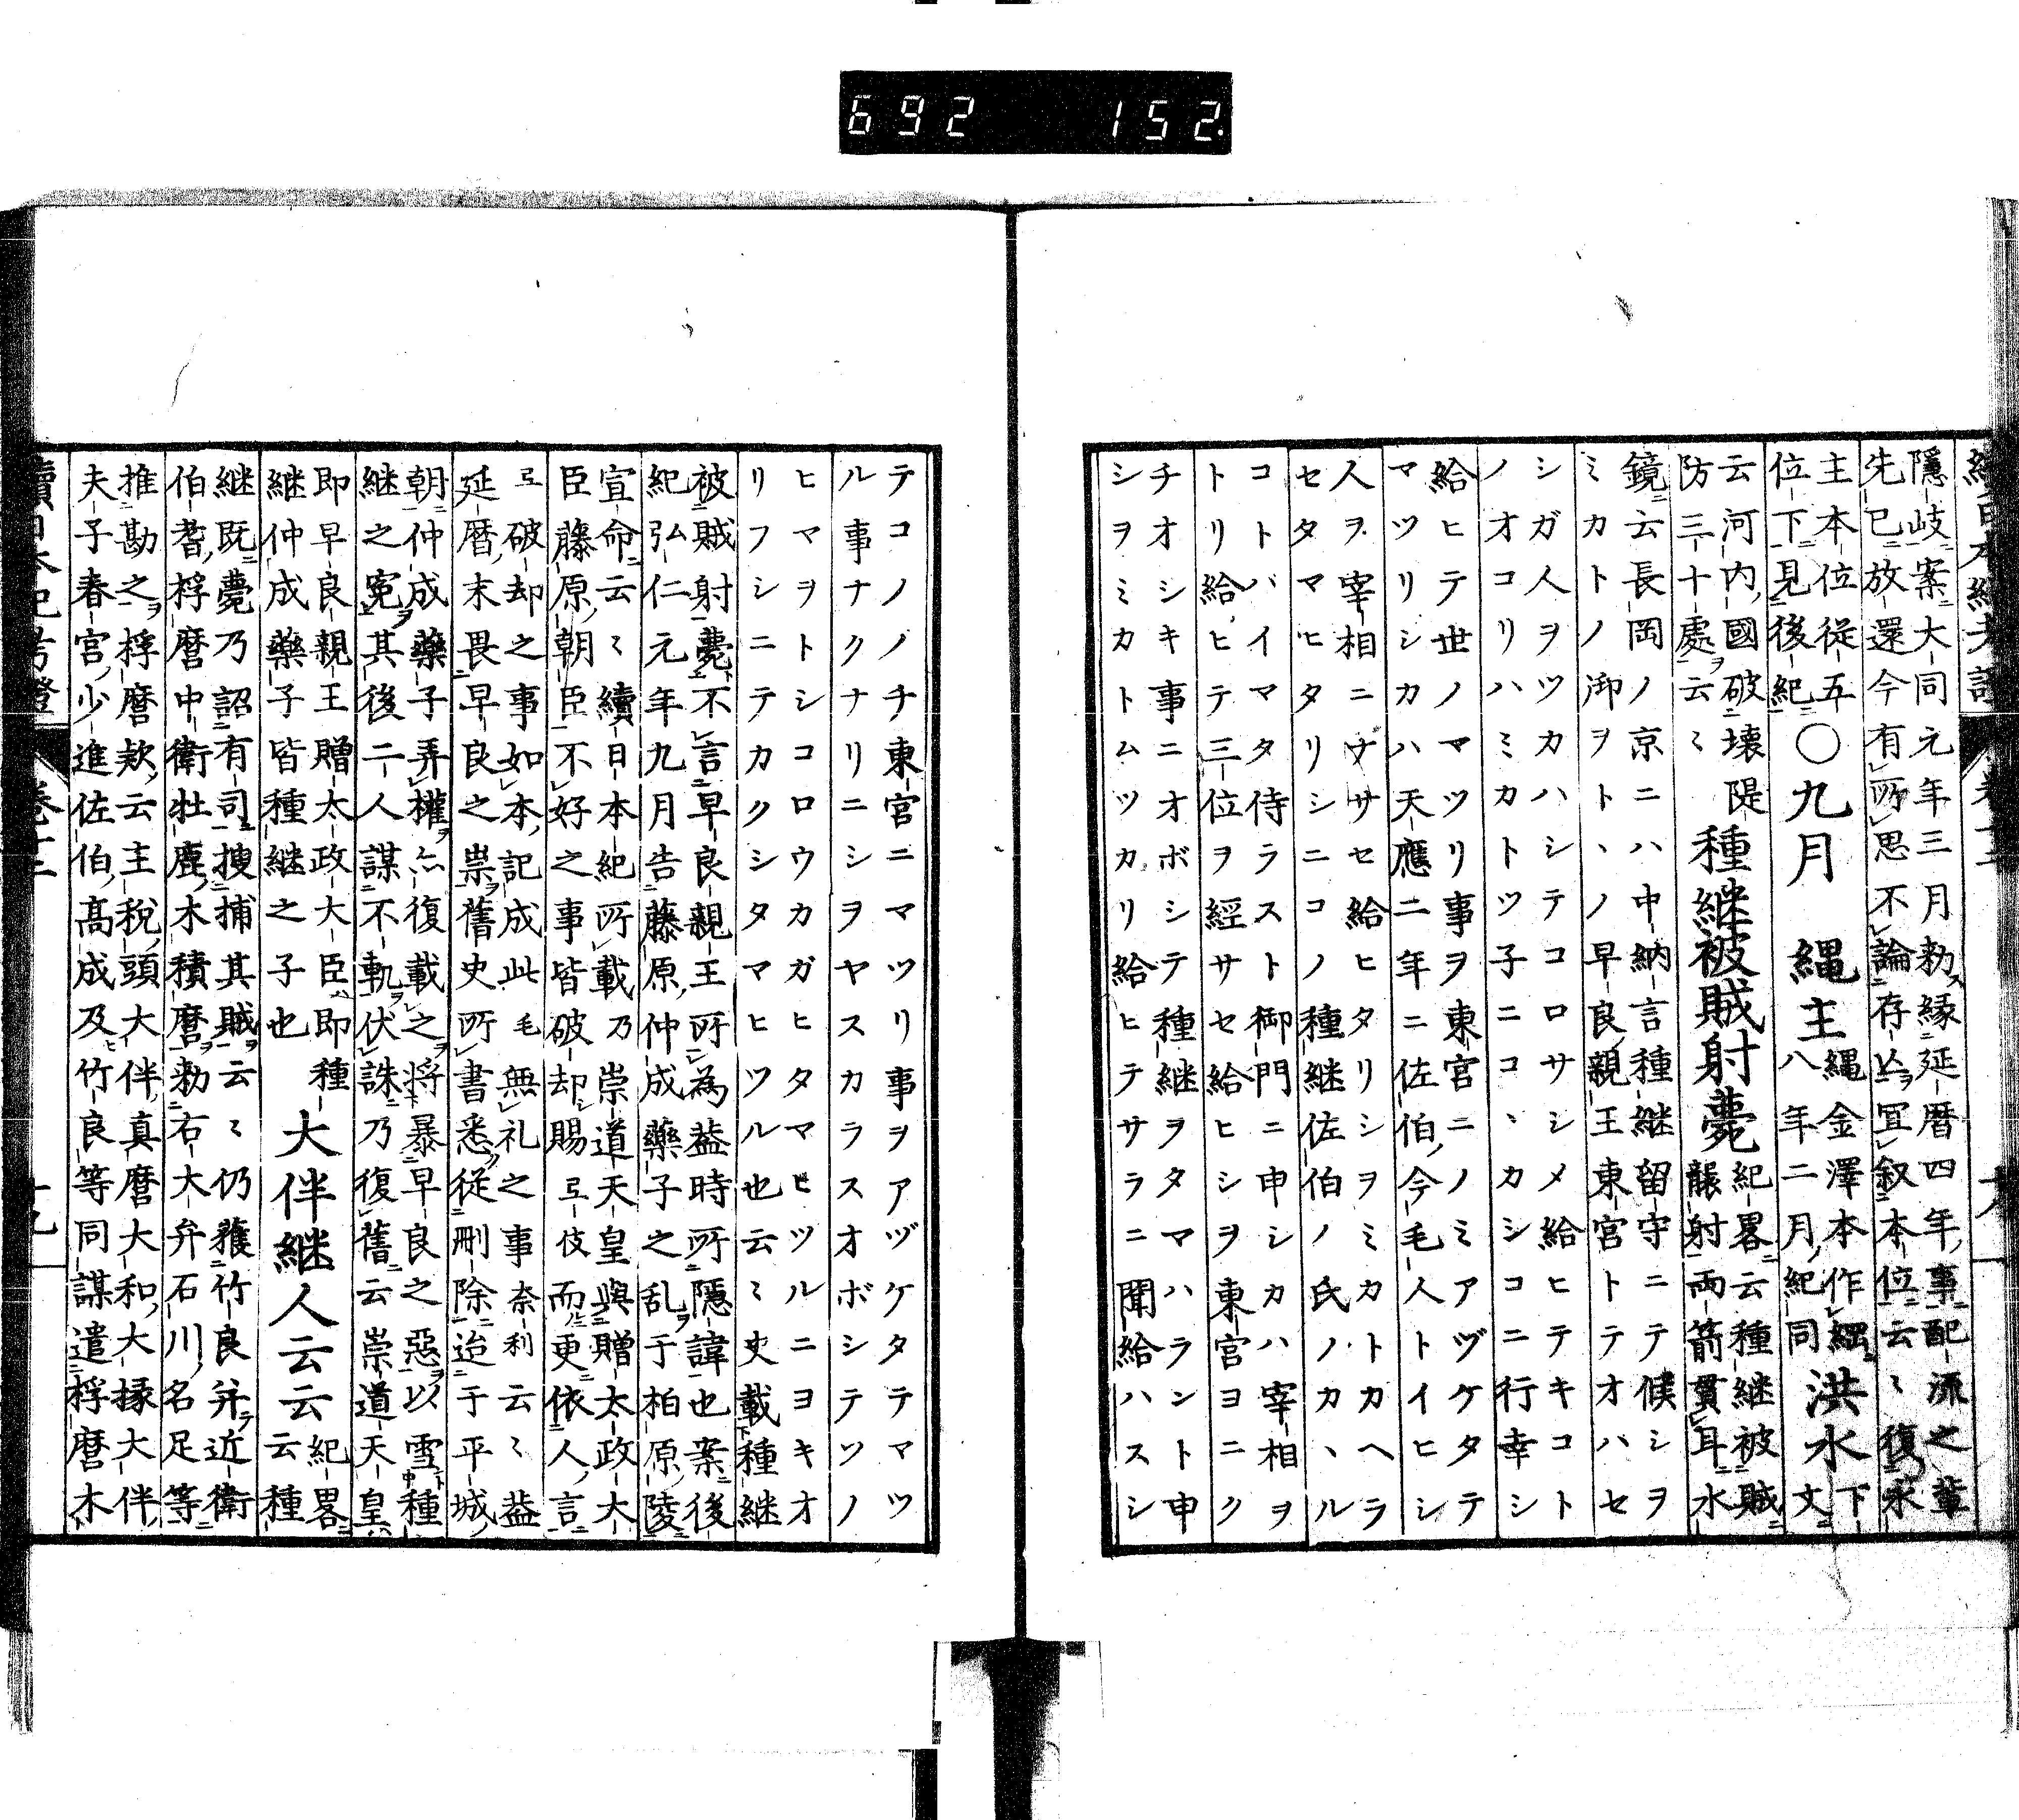 692 152.
隱岐案大同元年三月勅縁延暦四年事配流之輩
先已放還今有所思不論存亡宜叙本位云〻復永
主本位従五
位下見後紀
〇九月 縄主
縄金澤本作綱
八年二月紀同
洪水
下文
云河内國破壊隄
防三十處云〻
種継被賊射薨
紀畧云種継被賊
襲射両箭貫耳水
鏡云長岡ノ京ニハ中納言種継留守ニテ候シヲ
ミカトノ御ヲトヽノ早良親王東宮トテオハセ
シガ人ヲツカハシテコロサシメ給ヒテキコト
ノオコリハミカトツ子ニコヽカシコニ行幸シ
給ヒテ世ノマツリ事ヲ東宮ニノミアヅケタテ
マツリシカハ天應二年ニ佐伯今毛人トイヒシ
人ヲ宰相ニナサセ給ヒタリシヲミカトカヘラ
セタマヒタリシニコノ種継佐伯ノ氏ノカヽル
コトバイマタ侍ラスト御門ニ申シカハ宰相ヲ
トリ給ヒテ三位ヲ經サセ給ヒシヲ東宮ヨニク
チオシキ事ニオボシテ種継ヲタマハラント申
シヲミカトムツカリ給ヒテサラニ聞給ハスシ
テコノノチ東宮ニマツリ事ヲアヅケタテマツ
ル事ナクナリニシヲヤスカラスオボシテソノ
ヒマヲトシコロウカガヒタマヒツルニヨキオ
リフシニテカクシタマヒツル也云〻史載種継
被賊射薨不言早良親王所為葢時所隱諱也案後
紀弘仁元年九月告藤原仲成藥子之乱于柏原陵
宣命云〻續日本紀所載乃崇道天皇與贈太政大
臣藤原朝臣不好之事皆破却賜弖伎而更依人言
弖破却之事如本記成此毛無礼之事奈利云〻葢
延暦末畏早良之祟舊史所書悉従刪除迨于平城
朝仲成藥子弄權亦復載之将暴早良之惡以雪種
継之寃其後二人謀不軌伏誅乃復舊云崇道天皇
即早良親王贈太政大臣即種
継仲成藥子皆種継之子也
大伴継人云云
紀畧
云種
継既薨乃詔有司捜捕其賊云〻仍獲竹良并近衛
伯耆桴麿中衛牡鹿木積麿勅右大弁石川名足等
推勘之桴麿欵云主税頭大伴真麿大和大掾大伴
夫子春宮少進佐伯髙成及竹良等同謀遣桴麿木
續日本紀考證 巻十二